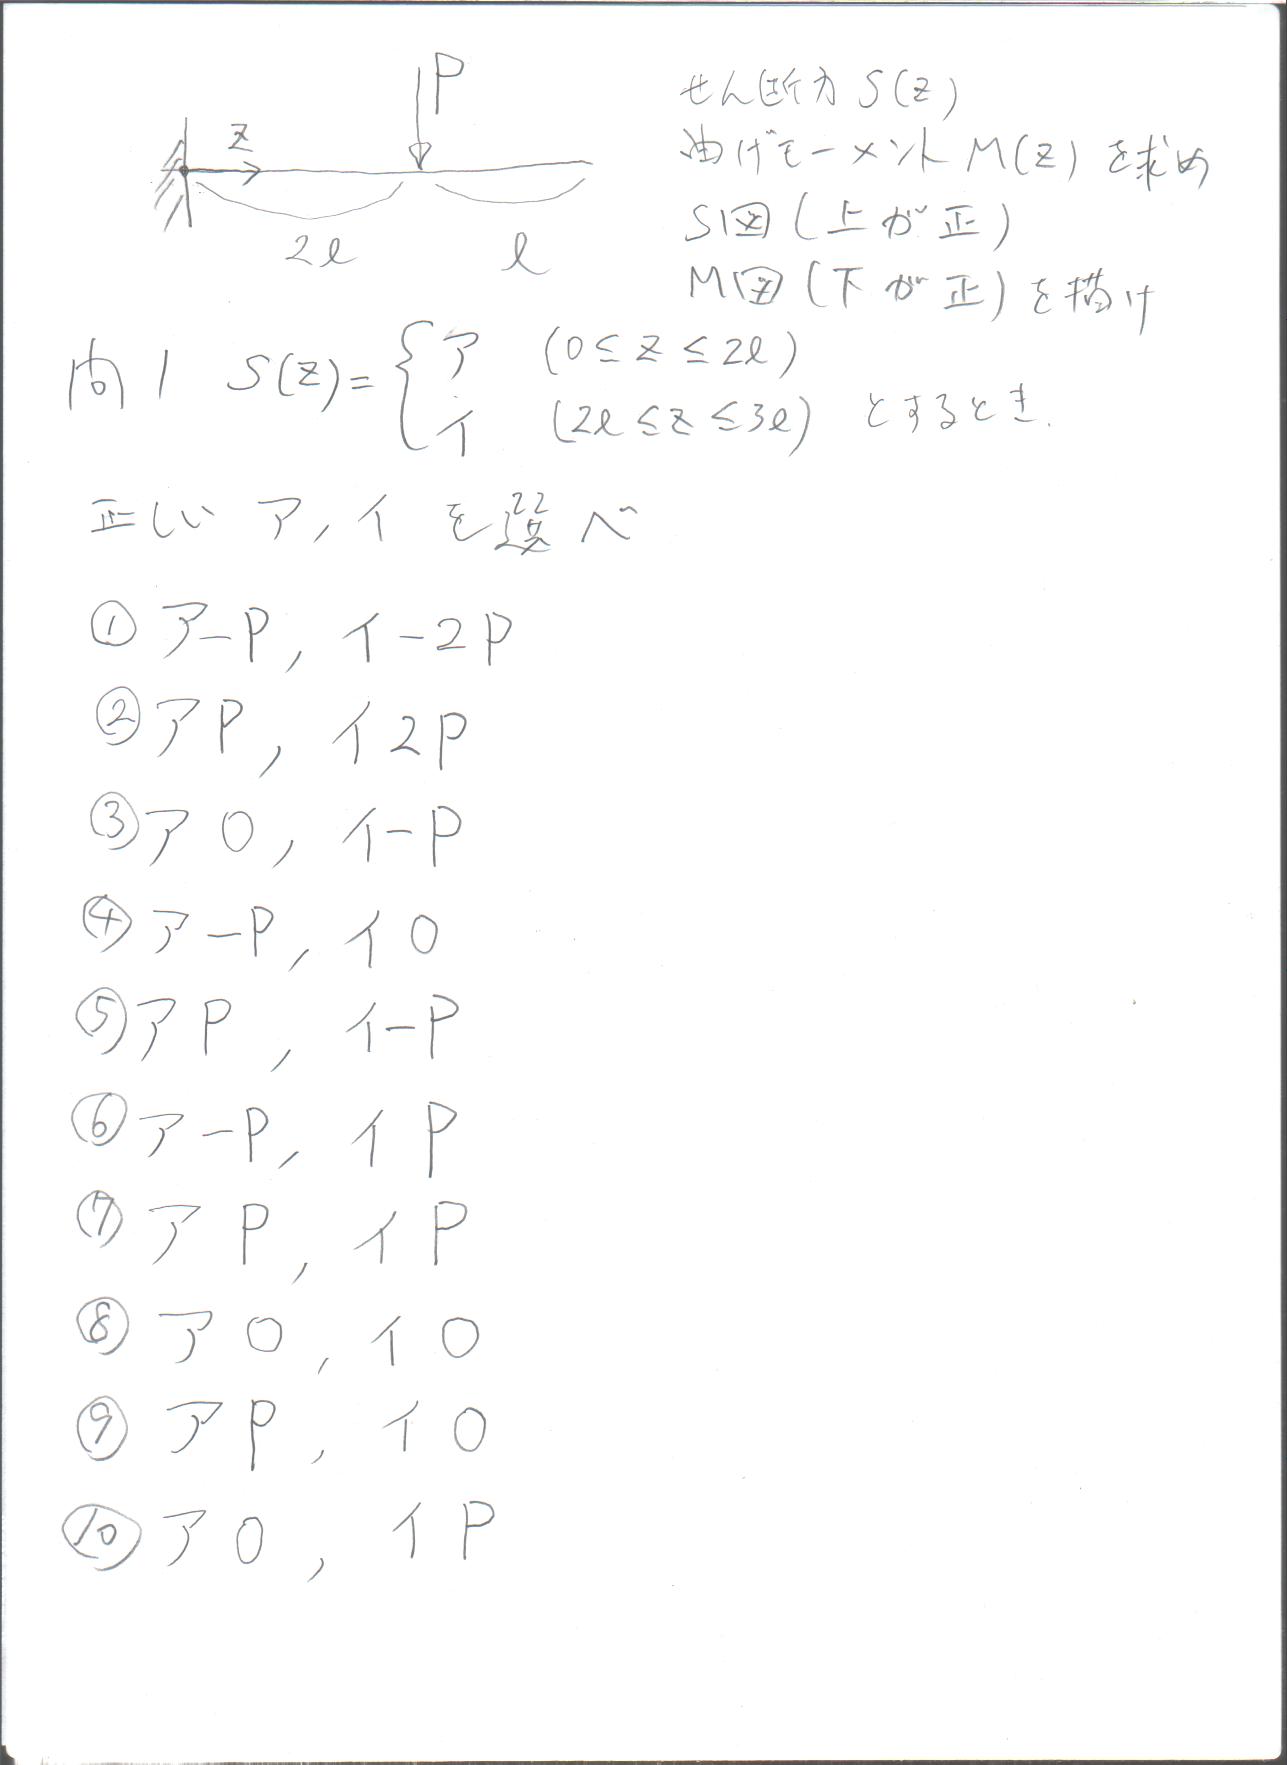 P
z
2l
l
せん断力 S(z)
曲げモーメント M(z) を求め
S図 (上が正)
M図 (下が正) を描け
問1 S(z)= { ア (0≤z≤2l)
イ (2l≤z≤3l) とするとき.
正しい ア, イ を選べ
① ア -P, イ -2P
② ア P, イ 2P
③ ア 0, イ -P
④ ア -P, イ 0
⑤ ア P, イ -P
⑥ ア -P, イ P
⑦ ア P, イ P
⑧ ア 0, イ 0
⑨ ア P, イ 0
⑩ ア 0, イ P